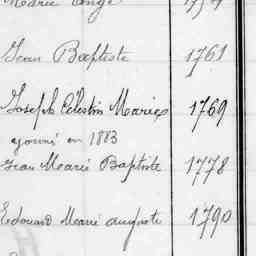 Marie Ange 1757
Jean Baptiste 1761
Joseph Célestin Marie 1769
en 1883
Jean Marie Baptiste 1778
Edouard Marie auguste 1790